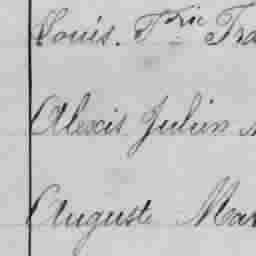 Louis. Fric Fra
Alexis Julien
Auguste Mar